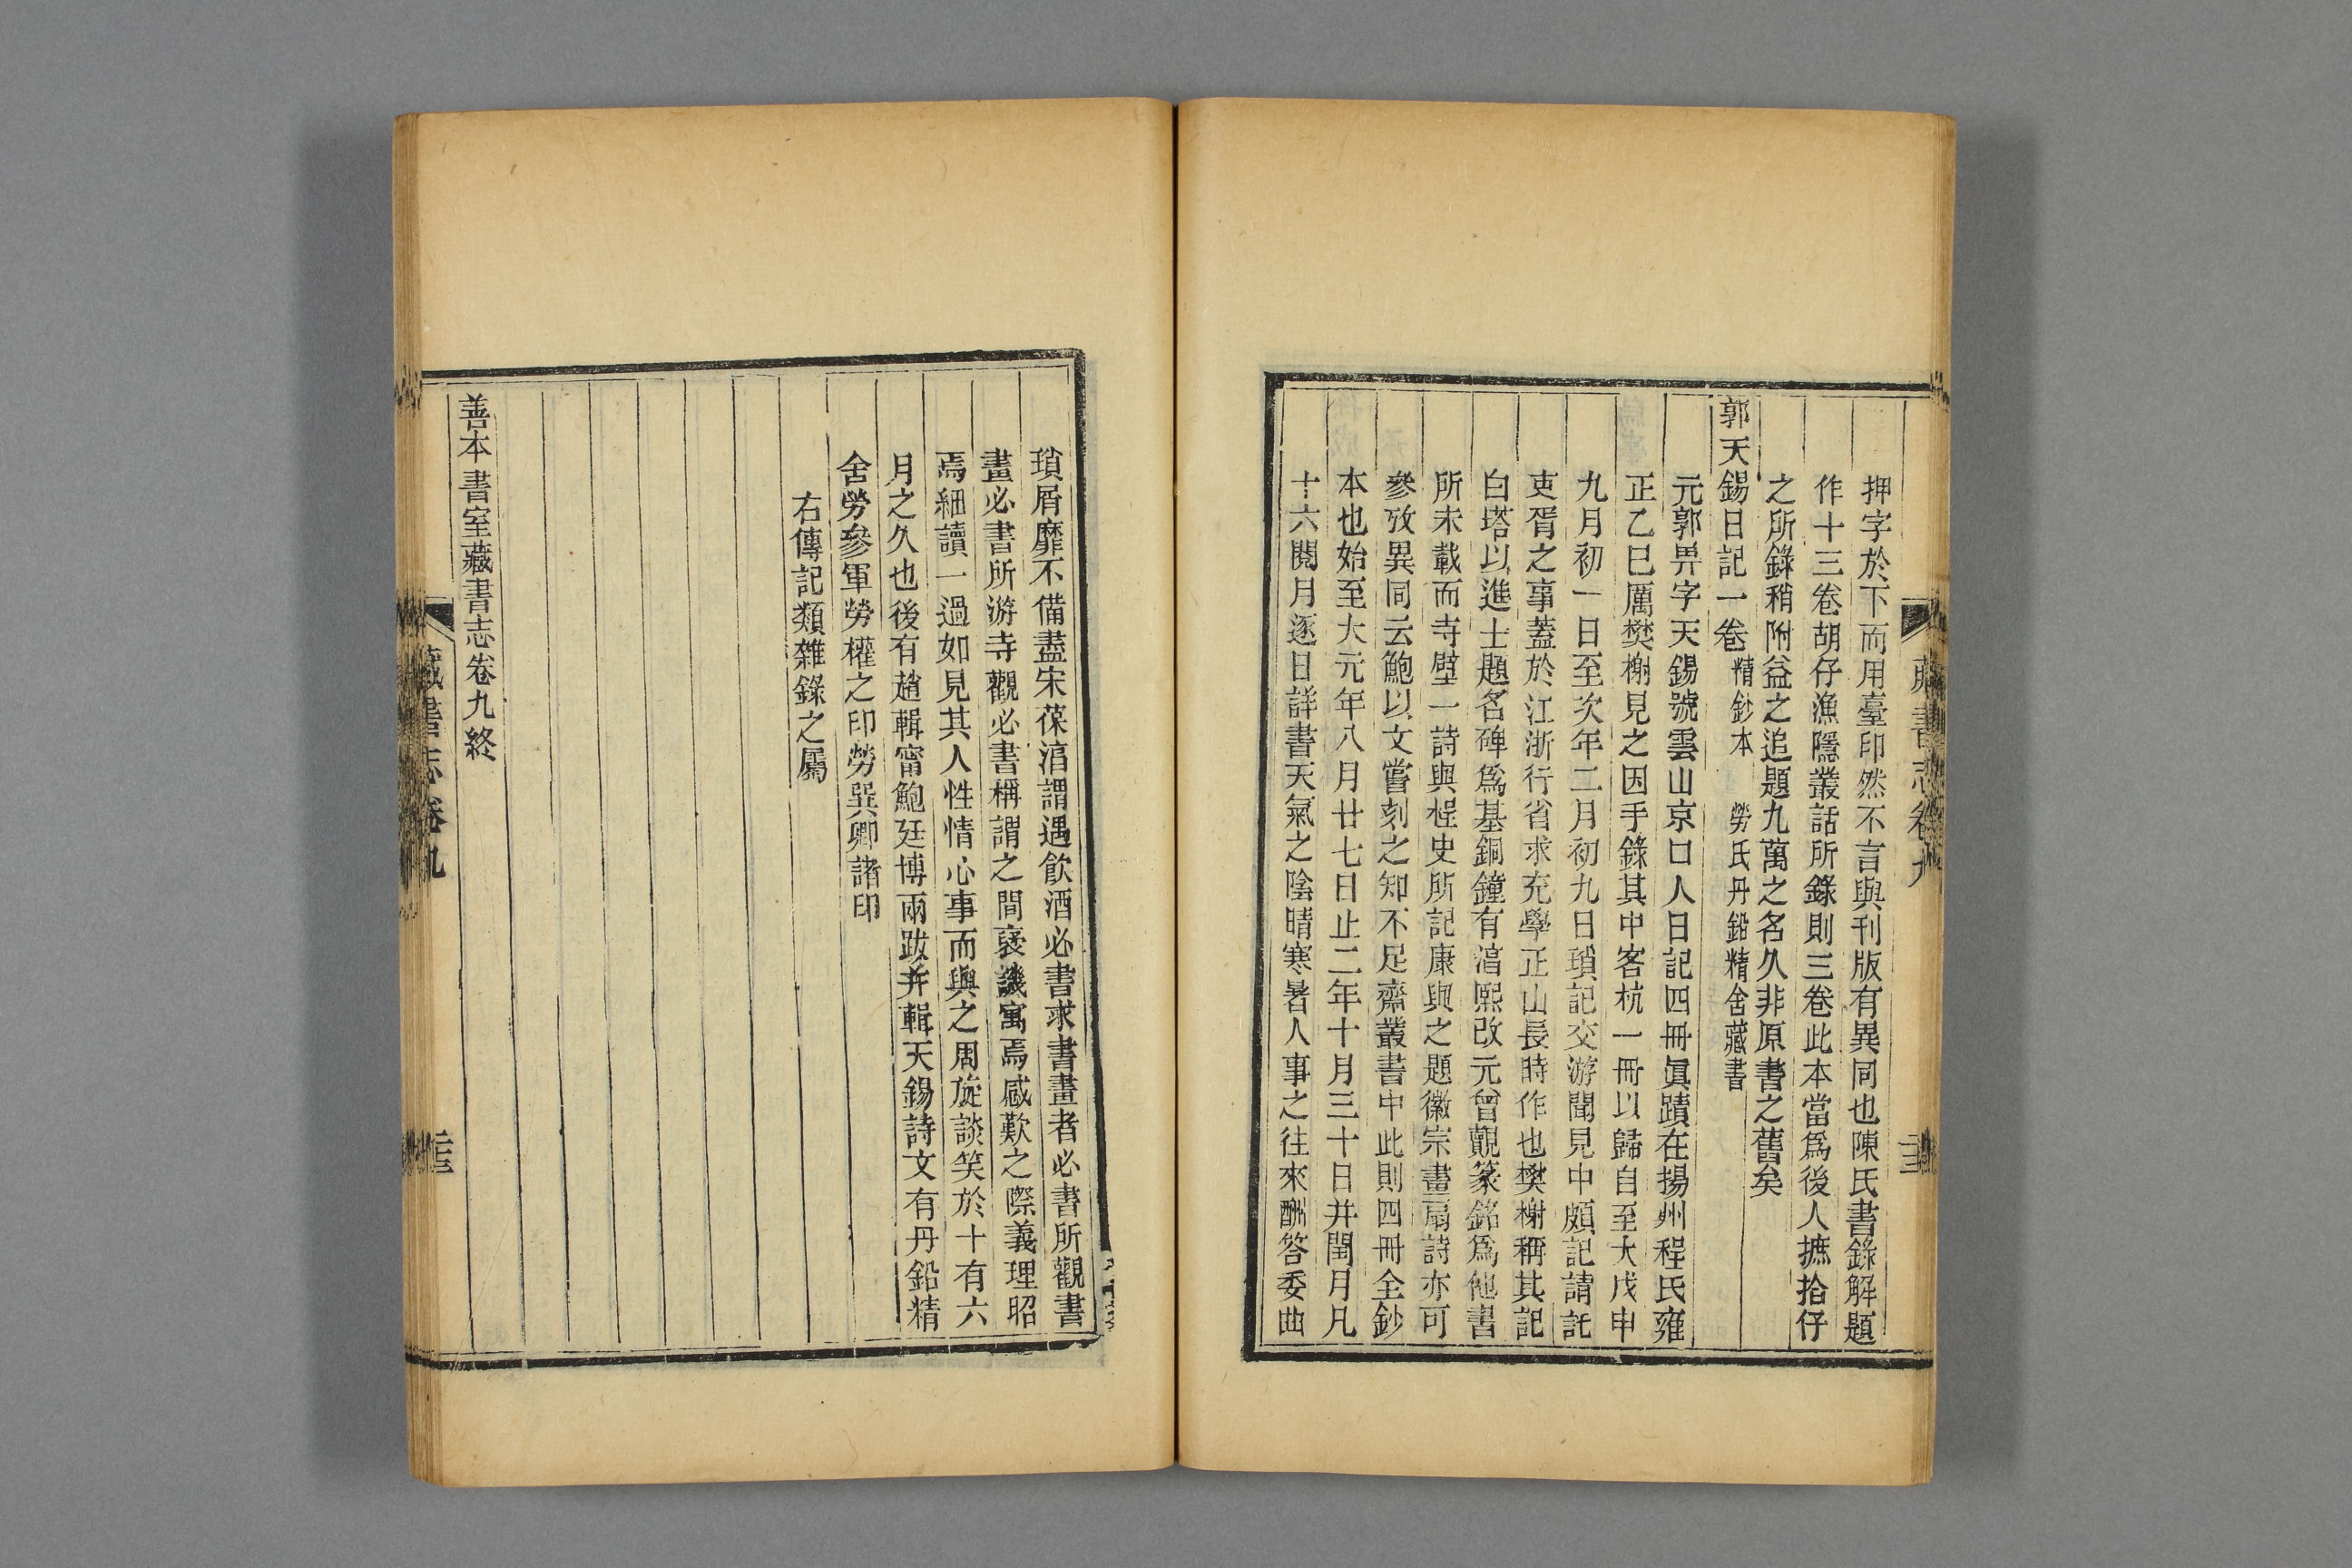 押字於下而用臺印然不言與刊版有異同也陳氏書錄解題
作十三卷胡仔漁隱叢話所錄則三卷此本當爲後人摭拾仔
之所錄稍附益之追題九萬之名久非原書之舊矣
郭天錫日記一卷 精鈔本 勞氏丹鉛精舍藏書
元郭畀字天錫號雲山京口人日記四冊眞蹟在揚州程氏雍
正乙巳厲樊榭見之因手錄其中客杭一冊以歸自至大戊申
九月初一日至次年二月初九日瑣記交游聞見中頗記請託
吏胥之事蓋於江浙行省求充學正山長時作也樊榭稱其記
白塔以進士題名碑爲基銅鐘有湻熙改元曾覿篆銘爲他書
所未載而寺壁一詩與桯史所記康與之題徽宗畫扇詩亦可
參攷異同云鮑以文嘗刻之知不足齋叢書中此則四冊全鈔
本也始至大元年八月廿七日止二年十月三十日并閏月凡
十六閱月逐日詳書天氣之陰晴寒暑人事之往來酬答委曲
瑣屑靡不備盡宋葆湻謂遇飮酒必書求書畫者必書所觀書
畫必書所游寺觀必書稱謂之間襃譏寓焉感歎之際義理昭
焉細讀一過如見其人性情心事而與之周旋談笑於十有六
月之久也後有趙輯甯鮑廷博兩跋并輯天錫詩文有丹鉛精
舍勞參軍勞權之印勞巽卿諸印
右傳記類雜錄之屬
善本書室藏書志卷九終
藏書志卷九